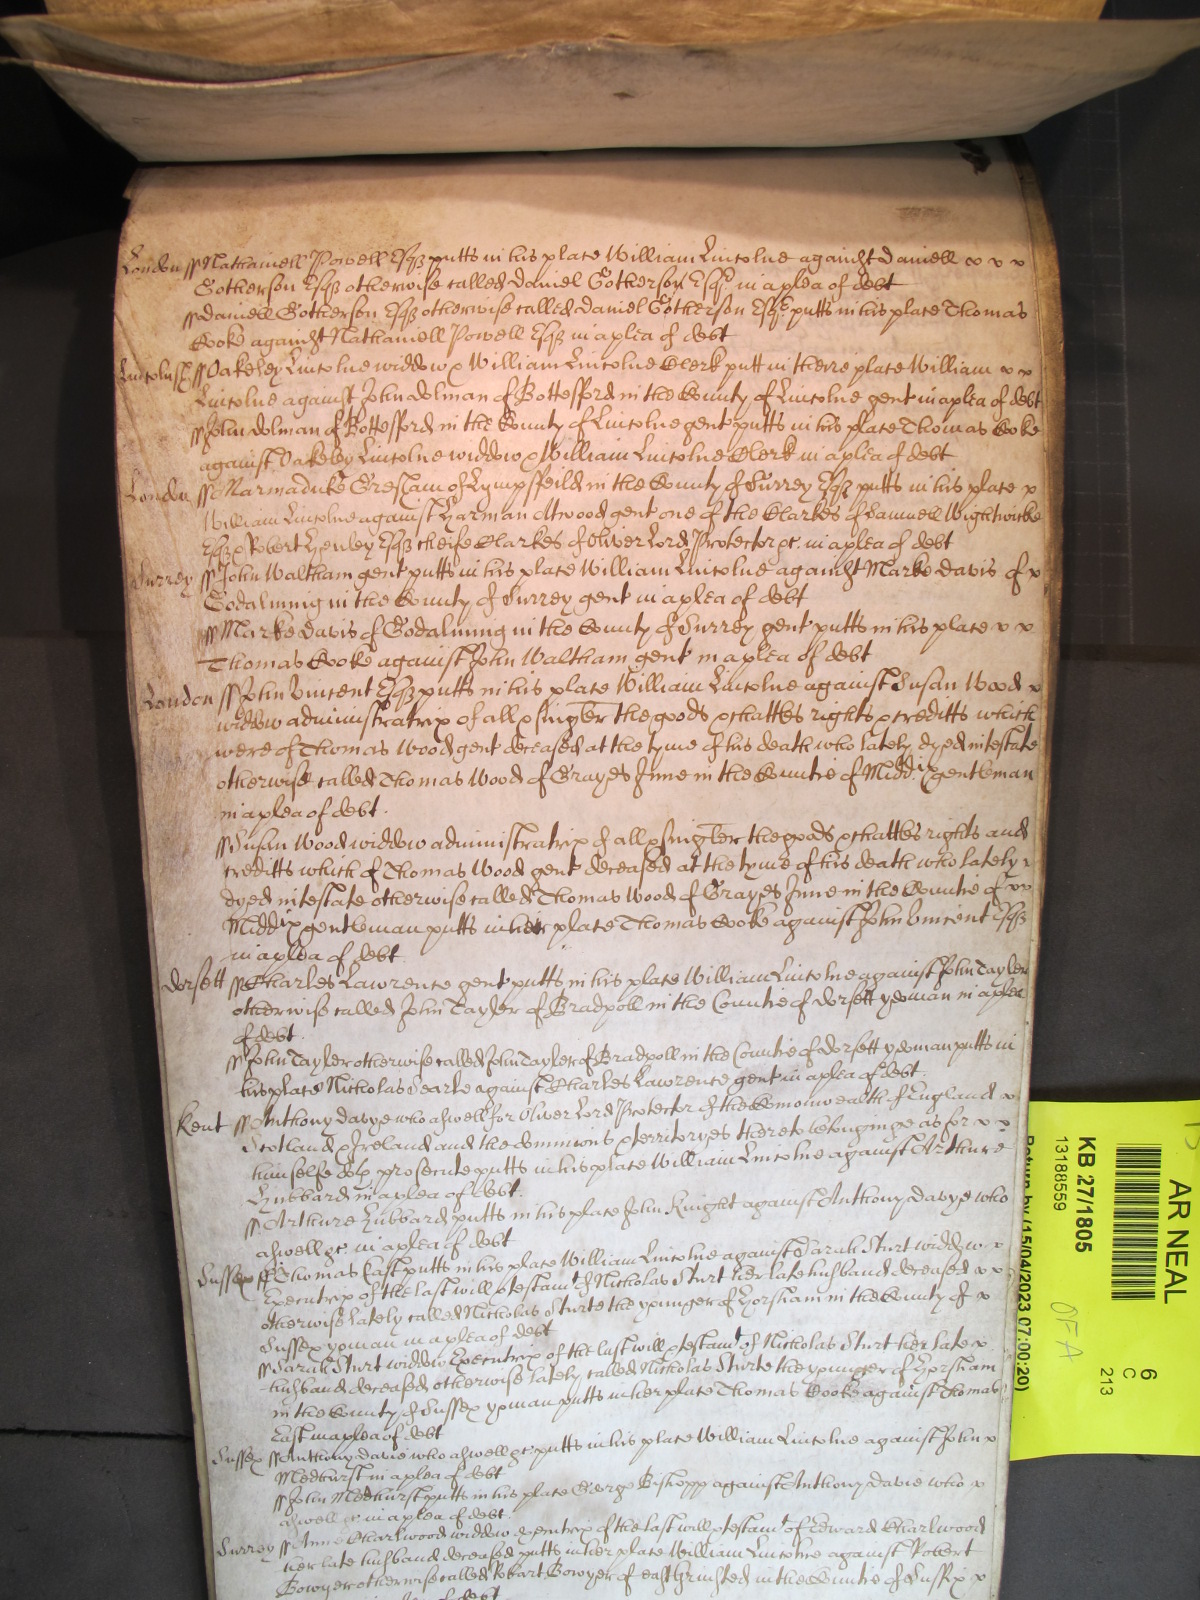 London ss Nathaniell Powell Esqr putts in his place William Lincolne against Daniell x x x
Gotherson Esqr otherwise called Daniel Gotherson Esqr in a plea of debt
ss Daniell Gotherson Esqr otherwise called Daniel Gotherson Esqr putts in his place Thomas
Cooke against Nathaniell Powell Esqr in a plea of debt
Lincolnsh ss Oakeley Lincolne widdow & William Lincolne Clerk putt in theire place William x x
Lincolne against John Dolman of Bottesford in the County of Lincolne gent in a plea of debt
ss John Dolman of Bottesford in the County of Lincolne gent putts in his place Thomas Cooke
against Oakeley Lincolne widdow & William Lincolne Clerk in a plea of debt
London ss Marmaduke Gresham of Lympsfeild in the County of Surrey Esqr putts in his place x
William Lincolne against Harman Atwood gent one of the Clarkes of Samuell Wightwicke
Esqr & Robert Henley Esqr cheife Clarkes of Oliver Lord Protector &c. in a plea of debt
Surrey ss John Waltham gent putts in his place William Lincolne against Marke Davis of x
Godalming in the County of Surrey gent in a plea of debt
ss Marke Davis of Godalming in the County of Surrey gent putts in his place x x
Thomas Cooke against John Waltham gent in a plea of debt
London ss John Vincent Esqr putts in his place William Lincolne against Susan Wood x
widdow administratrix of all & singler the goods & chattles rights & creditts which
were of Thomas Wood gent deceased at the tyme of his death who lately dyed intestate
otherwise called Thomas Wood of Grayes Inne in the Countie of Middx gentleman
in a plea of debt.
ss Susan Wood widdow administratrix of all & singler the goods & chattles rights and
creditts which of Thomas Wood gent deceased at the tyme of his death who lately x
dyed intestate otherwise called Thomas Wood of Grayes Inne in the Countie of x x
Middx gentleman putts in her place Thomas Cooke against John Vincent Esqr
in a plea of debt.
Dorsett ss Charles Lawrence gent putts in his place William Lincolne against John Tayler
otherwise called John Tayler of Bradpoll in the Countie of Dorsett yeoman in a plea
of debt.
ss John Tayler otherwise called John Tayler of Bradpoll in the Countie of Dorsett yeoman putts in
his place Nicholas Searle against Charles Lawrence gent in a plea of debt.
Kent ss Anthony Davye who aswell for Oliver Lord Protector of the Comonwealth of England x
Scotland & Ireland and the dominions & territoryes thereto belonginge as for x x
himselfe doth prosecute putts in his place William Lincolne against Arthure
Hubbard in a plea of debt.
ss Arthure Hubbard putts in his place John Knight against Anthony Davye who
aswell &c. in a plea of debt
Sussex ss Thomas East putts in his place William Lincolne against Sarah Sturt widdow x
Executrix of the last will & testamt of Nicholas Sturt her late husband deceased x x
otherwise lately called Nicholas Sturte the younger of Horsham in the County of x
Sussex yoman in a plea of debt
ss Sarah Sturt widdow Executrix of the last will & testamt of Nicholas Sturt her late x
husband deceased otherwise lately called Nicholas Sturte the younger of Horsham
in the County of Sussex yoman putts in her place Thomas Cooke against Thomas
East in a plea of debt
Sussex ss Anthony Davie who aswell &c putts in his place William Lincolne against John x
Medhurst in a plea of debt
ss John Medhurst putts in his place George Bishopp against Anthony Davie who x
aswell &c in a plea of debt.
Surrey ss Anne Charlwood widdow Executrix of the last will & testamt of Edward Charlwood
her late husband deceased putts in her place William Lincolne against Robert
Bowyer otherwise called Robart Bowyer of East Grinsted in the Countie of Sussex x
of debt
AR NEAL
6
C
213
KB 27/1805
13188559
OFA
Return by (15/04/2023 07:00:20)